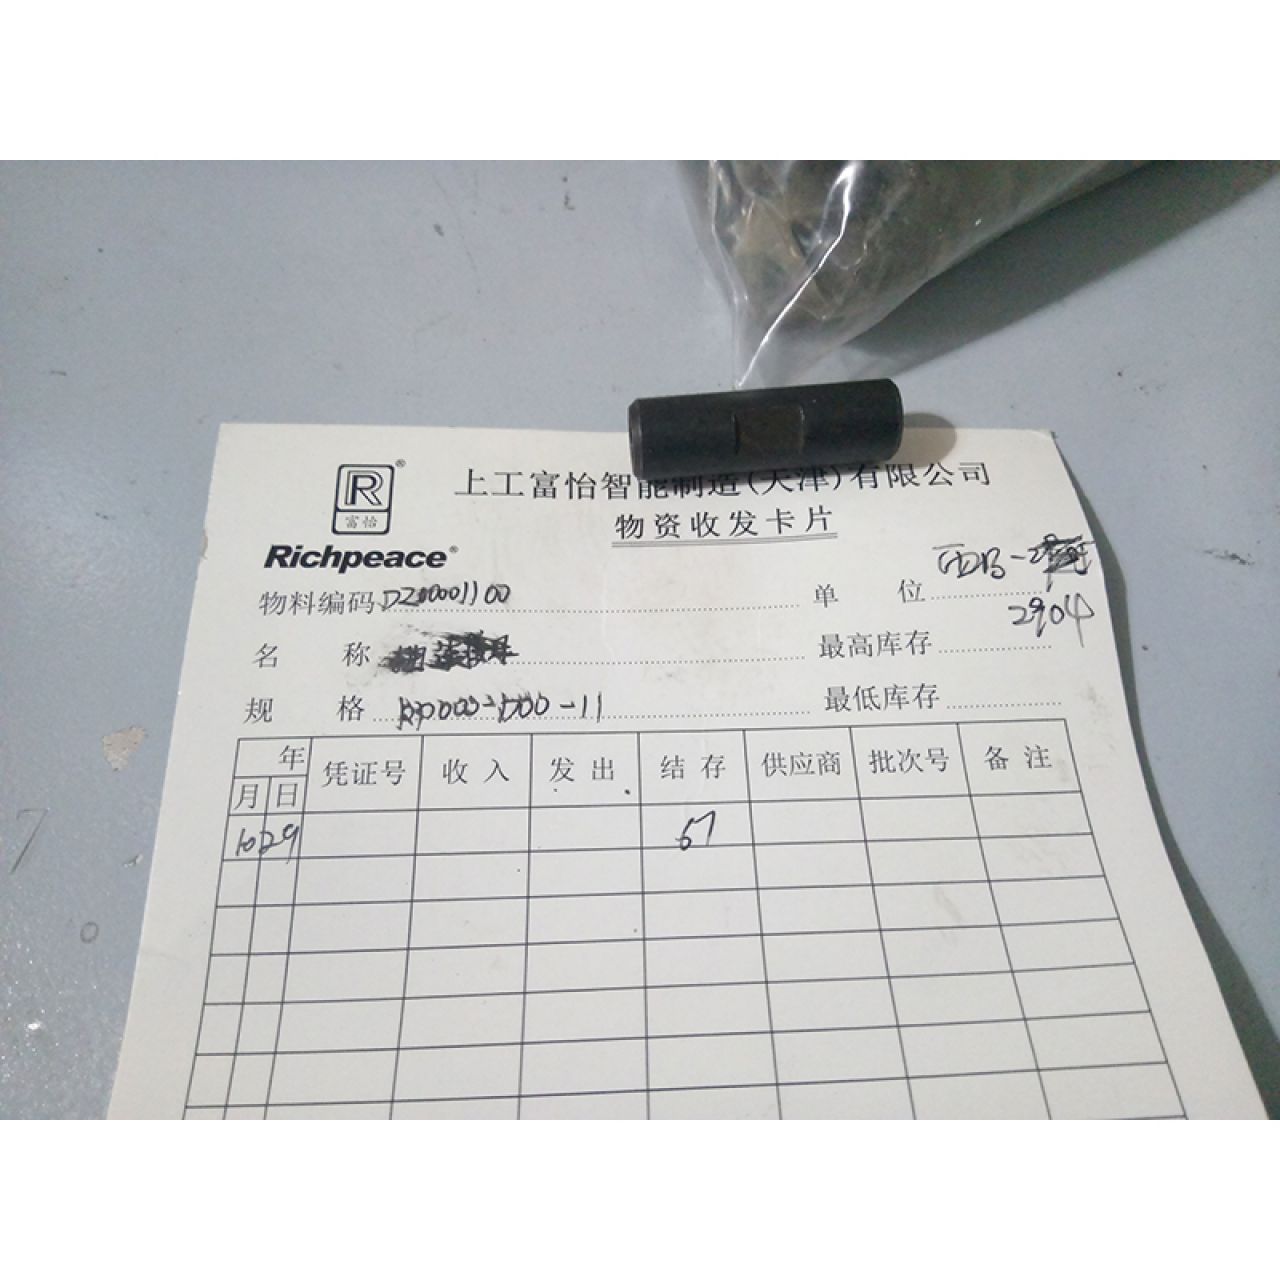 R®
富怡
Richpeace®
上工富怡智能制造(天津)有限公司
物资收发卡片
物料编码 DZ00001100 单 位
2904
名 称 最高库存
规 格 最低库存
年 凭证号 收入 发出 结存 供应商 批次号 备注
月 日
10 29 67